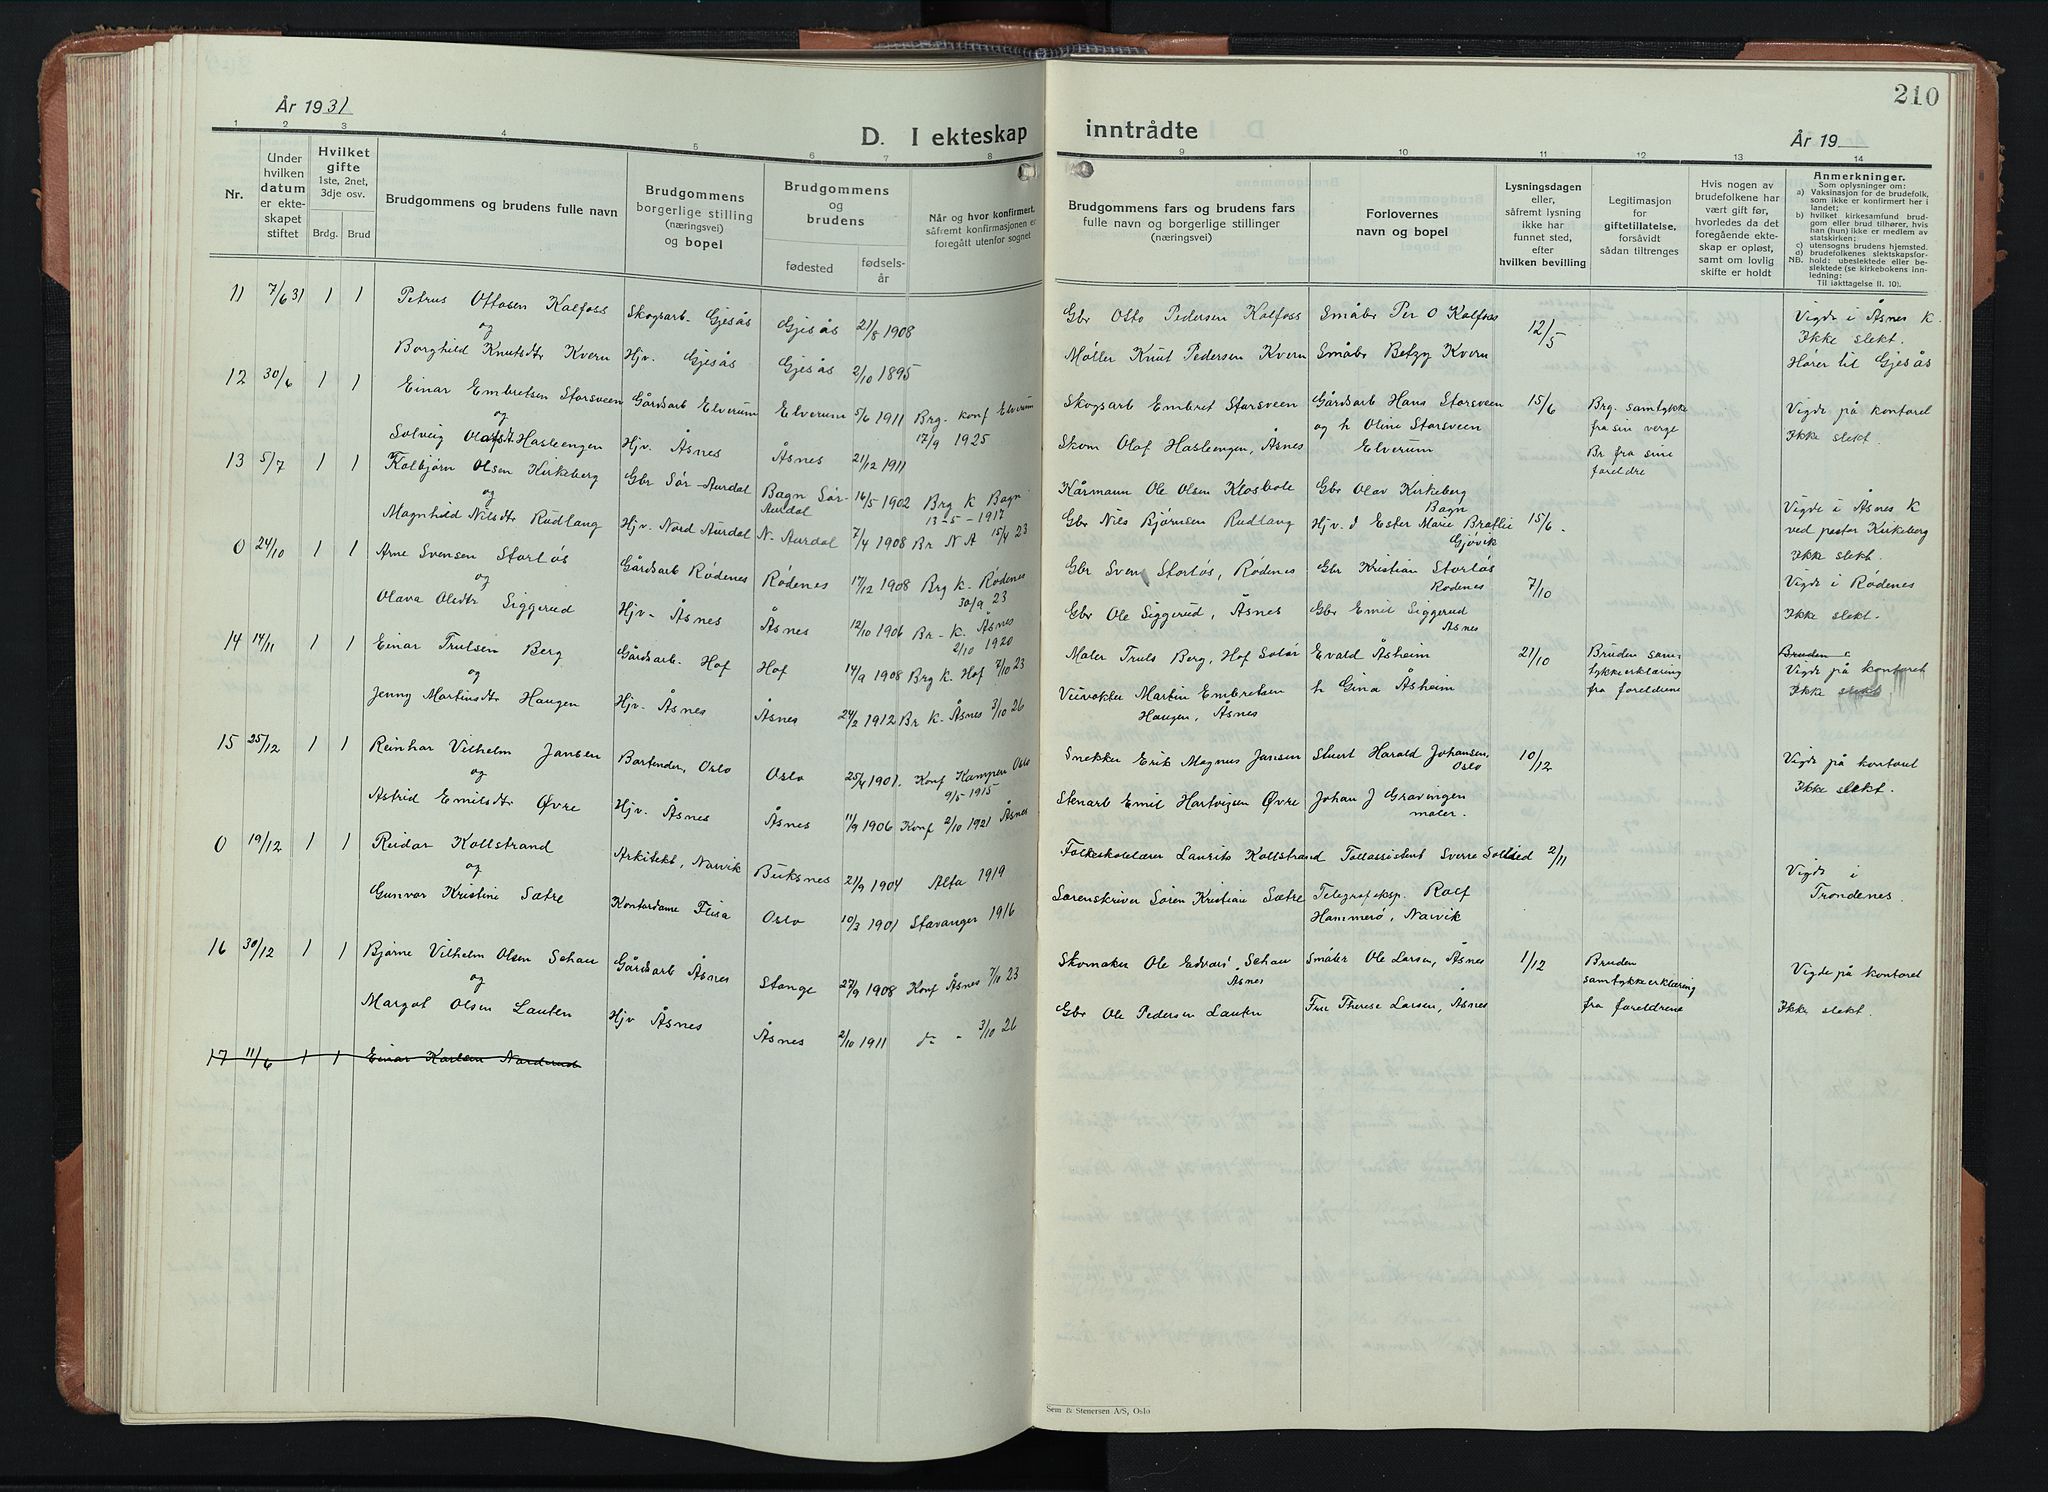 År 1931
D. I ekteskap
1 2 3 4 5 6 7 8
Nr.
Under hvilken datum er ekteskapet stiftet
Hvilket gifte 1ste, 2net, 3dje osv.
Brdg. Brud
Brudgommens og brudens fulle navn
Brudgommens borgerlige stilling (næringsvei) og bopel
Brudgommens og brudens
fødested
fødselsår
Når og hvor konfirmert, såfremt konfirmasjonen er foregått utenfor sognet
11 7/6 31 1 1 Petrus Ottosen Kalfoss Skogsarb- Gjesås Gjesås 21/8 1908
og
Borghild Knutsdtr Kvern Hjv. Gjesås Gjesås 2/10 1895
12 30/6 1 1 Einar Embretsen Storsveen Gårdsarb Elverum Elverum 5/6 1911 Brg. konf Elverum
og 17/9 1925
Solveig Olafsdt Hasleengen Hjv. Åsnes Åsnes 21/12 1911
13 5/7 1 1 Kolbjørn Olsen Kirkeberg Gbr Sør-Aurdal Bagn Sør-Aurdal 16/5 1902 Brg K Bagn
og 13-5-1917
Magnhild Nilsdtr Rudlang Hjv. Nord Aurdal N- Aurdal 7/4 1908 Br N A 15/4 23
0 24/10 1 1 Arne Svensen Storløs Gårdsarb Rødenes Rødenes 17/12 1908 Brg k- Rødenes
og 30/9 23
Olava Olsdtr Siggerud Hjv- Åsnes Åsnes 12/10 1906 Br- K. Åsnes
2/10 1920
14 14/11 1 1 Einar Trulsen Berg Gårdsarb- Hof Hof 14/9 1908 Brg K. Hof 7/10 23
og
Jenny Martinsdt Haugen Hjv. Åsnes Åsnes 24/2 1912 Br K. Åsnes 3/10 26
15 25/12 1 1 Reinhar Vilhelm Jansen Bartender, Oslo Oslo 25/4 1901. Konf Kampen Oslo
og 9/5-1915
Astrid Emilsdtr Øvre Hjv. Åsnes Åsnes 11/9 1906 Konf 2/10 1921 Åsnes
0 19/12 1 1 Reidar Kollstrand Arkitekt, Narvik Buksnes 21/9 1904 Alta 1919
og
Gunvor Kristine Sætre Kontordame Flisa Oslo 10/3 1901 Stavanger 1916
16 30/12 1 1 Bjarne Vilhelm Olsen Schau Gårdsarb Åsnes Stange 27/9 1908 Konf Åsnes 7/10 23
og
Margot Olsen Lauten Hjv Åsnes Åsnes 2/10 1911 d- - 3/10 26
17 11/6 1 1 Einar Karlsen Norderud
210
inntrådte
År 19
9 10 11 12 13 14
Brudgommens fars og brudens fars fulle navn og borgerlige stillinger (næringsvei)
Forlovernes navn og bopel
Lysningsdagen eller, såfremt lysning ikke har funnet sted, efter hvilken bevilling
Legitimasjon for giftetillatelse, forsåvidt sådan tiltrenges
Hvis nogen av brudefolkene har vært gift før, hvorledes da det foregående ekteskap er opløst, samt om lovlig skifte er holdt
Anmerkninger.
Som oplysninger om:
a) Vaksinasjon for de brudefolk, som ikke er konfirmert her i landet;
b) hvilket kirkesamfund brudgom eller brud tilhører, hvis han (hun) ikke er medlem av statskirken;
c) utensogns brudens hjemsted.
d) brudefolkenes slektskapsforhold: ubeslektede eller beslektede (se kirkebokens innledning:
NB. Til iakttagelse II. 10).
Gbr Otto Pedersen Kalfoss Småbr Per O Kalfoss 12/5 Vigde i Åsnes K.
Ikke slekt.
Møller Knut Pedersen Kvern Småbr Betzy Kvern Hører til Gjesås
Skogsarb Embret Storsveen Gårdsarb Hans Storsveen 15/6 Brg. samtykke Vigde på kontoret
og h Oline Storsveen fra sin verge
Skom Olaf Hasleengen, Åsnes Elverum Br fra sine foreldre Ikke slekt.
Kårmann Ole Olsen Klosbøle Gbr Olav Kirkeberg Bagn Vigde i Åsnes K
Gbr Nils Bjørnsen Rudlang Hjv. d Ester Marie Brøtlie Gjøvik 15/6. ved pastor Kirkeberg
Ikke slekt.
Gbr Sven Storløs, Rødenes Gbr Kristian Storløs Rødenes 7/10 Vigde i Rødenes
Gbr Ole Siggerud, Åsnes Gbr Emil Siggerud Åsnes Ikke slekt.
Maler Truls Berg, Hof Solør Evald Åsheim 21/10 Bruden samtykkerklæring fra foreldrene Bruden
Vigde på kontoret
Martin Embretsen Haugen, Åsnes h Gina Åsheim Ikke slekt
Snekker Erik Magnus Jansen Stuert Harald Johansen, Oslo 10/12 Vigde på kontoret
Stenarb Emil Hartvigsen Øvre Johan J Gravingen maler. Ikke slekt.
Folkeskolelærer Laurits Kollstrand Tollassistent Sverre Sollied 2/11 Vigde i
Sorenskriver Søren Kristian Sætre Telegrafeksp. Rolf Hammerø, Narvik Trondenes.
Skomaker Ole Edvard Schau Åsnes Småbr Ole Larsen, Åsnes 1/12 Bruden samtykkeerklæring fra foreldrene Vigde på kontoret
Gbr Ole Pedersen Lauten Fru Therese Larsen, Åsnes Ikke slekt.
Sem & Stenersen A/S, Oslo